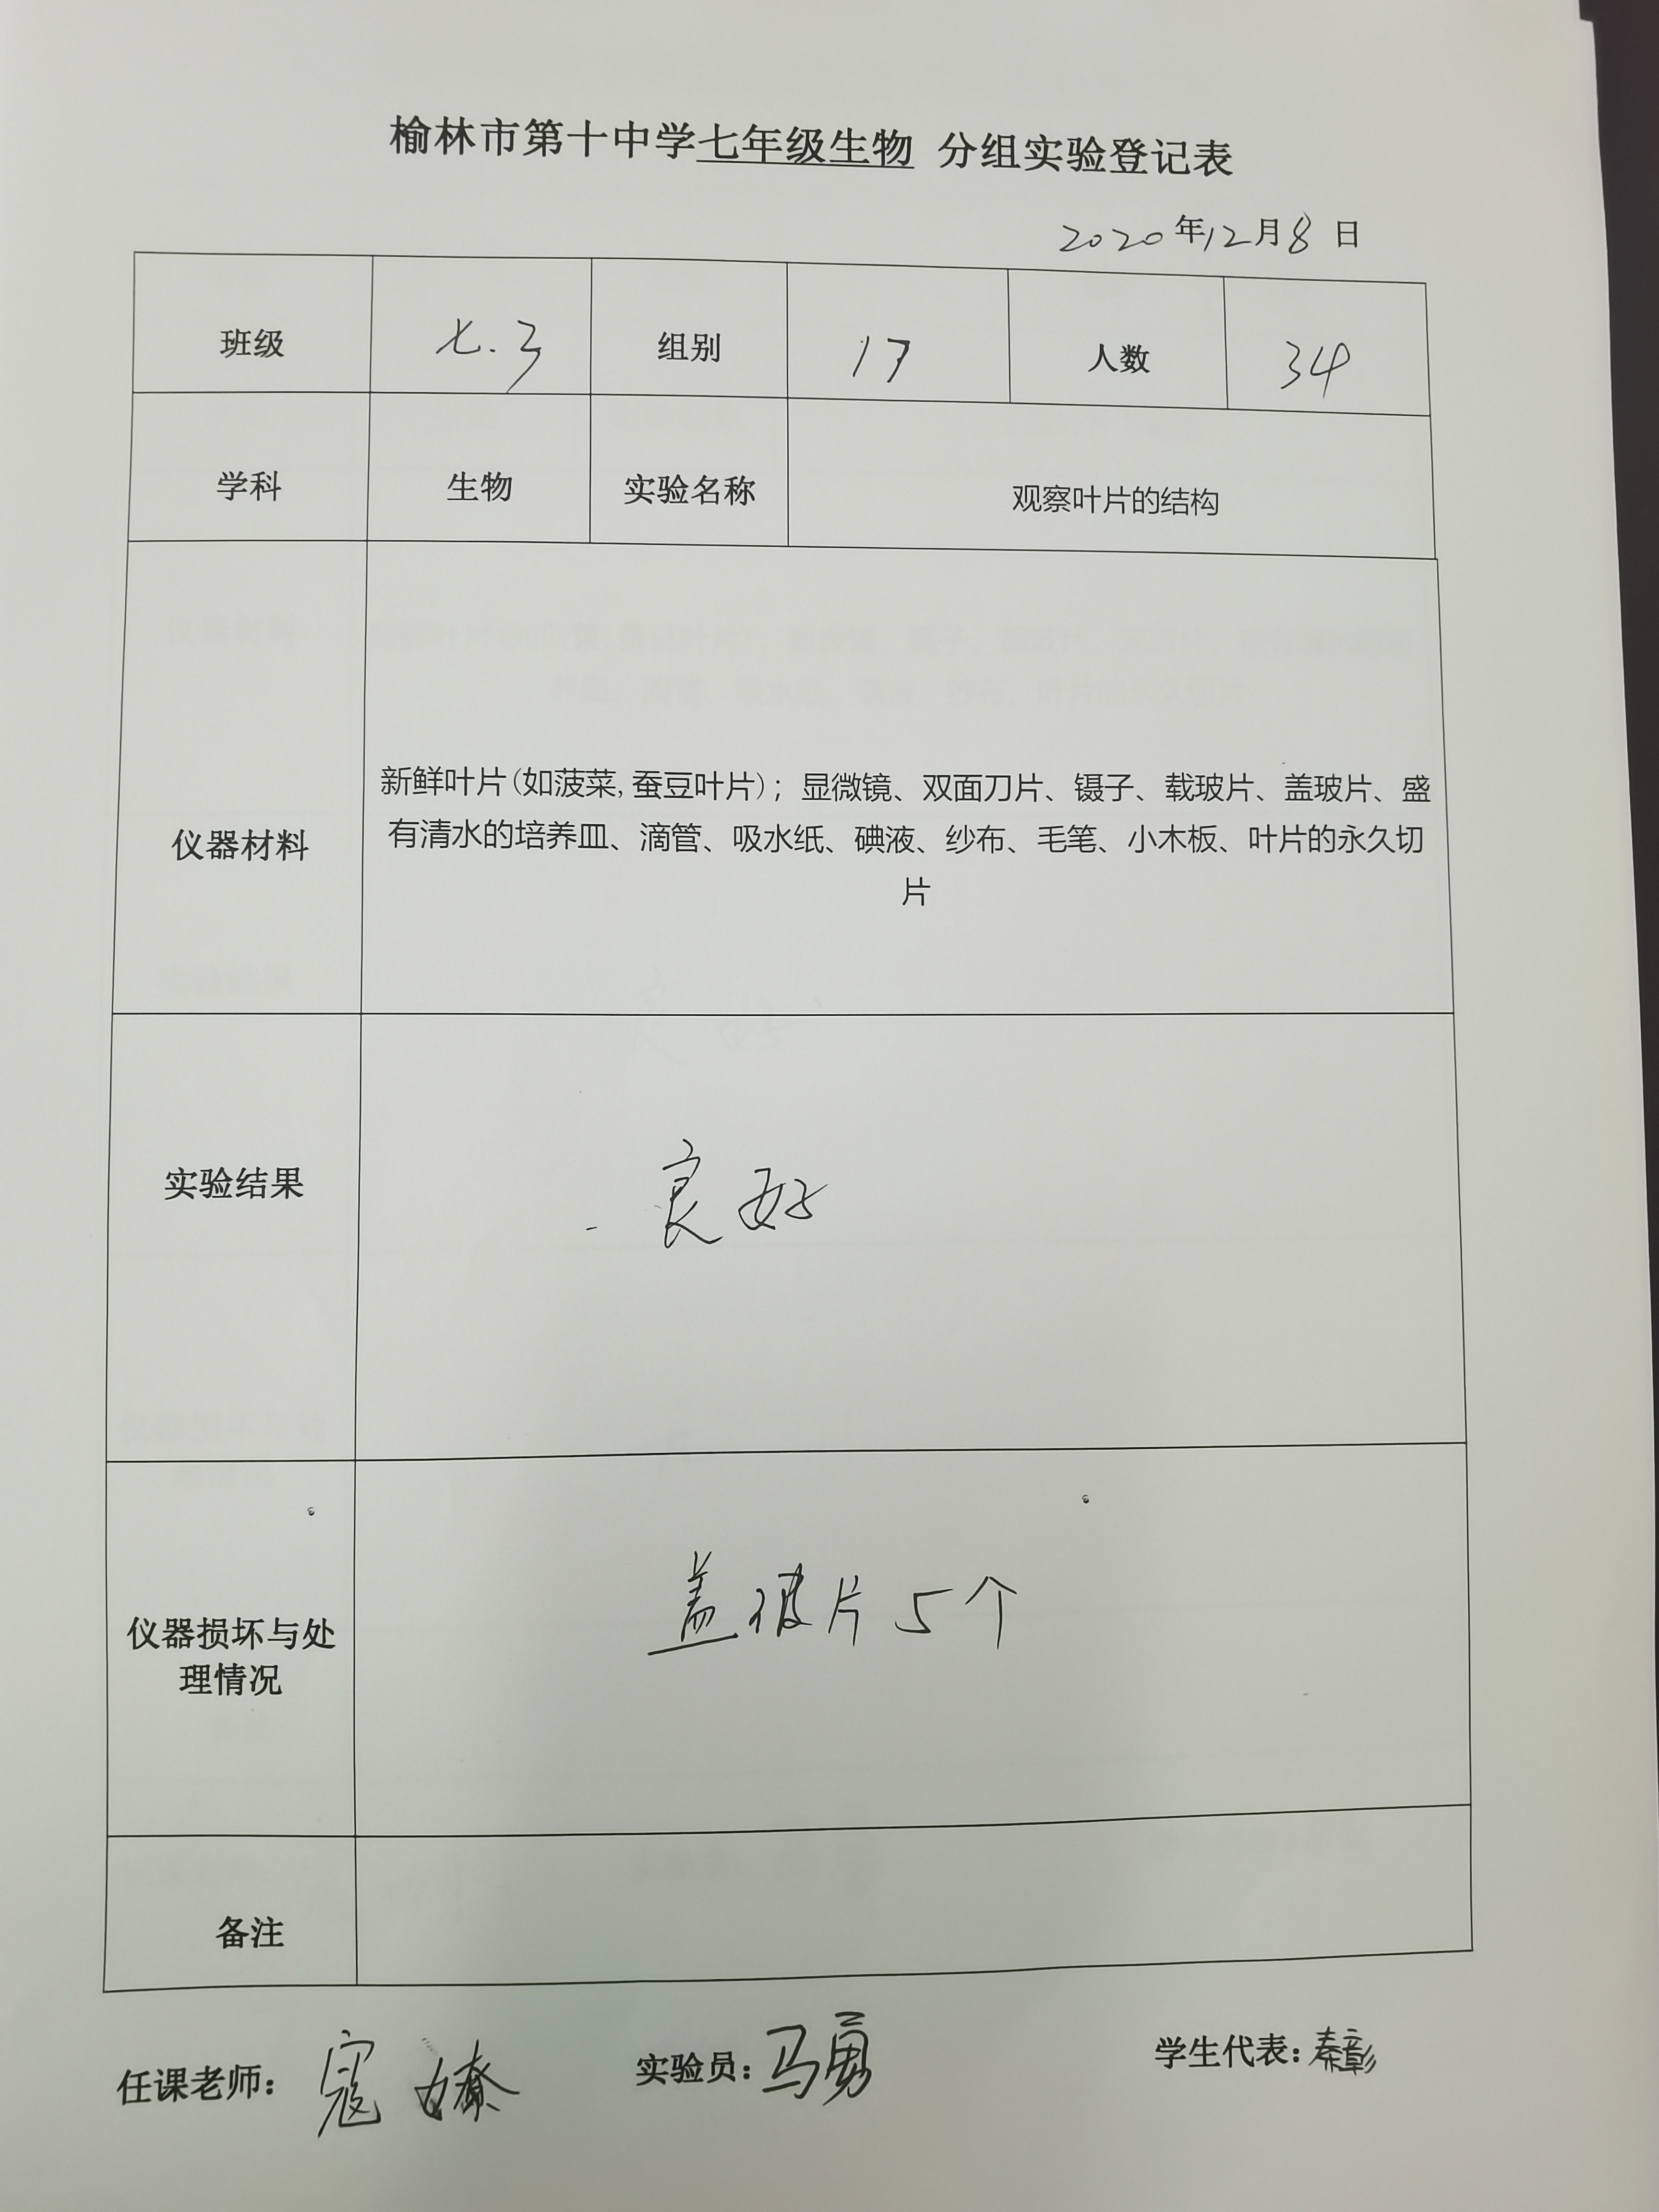 榆林市第十中学七年级生物 分组实验登记表
2020年12月8日
班级 七.3 组别 17 人数 34
学科 生物 实验名称 观察叶片的结构
仪器材料
新鲜叶片(如菠菜,蚕豆叶片);显微镜、双面刀片、镊子、载玻片、盖玻片、盛
有清水的培养皿、滴管、吸水纸、碘液、纱布、毛笔、小木板、叶片的永久切
片
实验结果 良好
仪器损坏与处
理情况
盖玻片5个
备注
任课老师: 寇 实验员: 马勇 学生代表: 秦彰